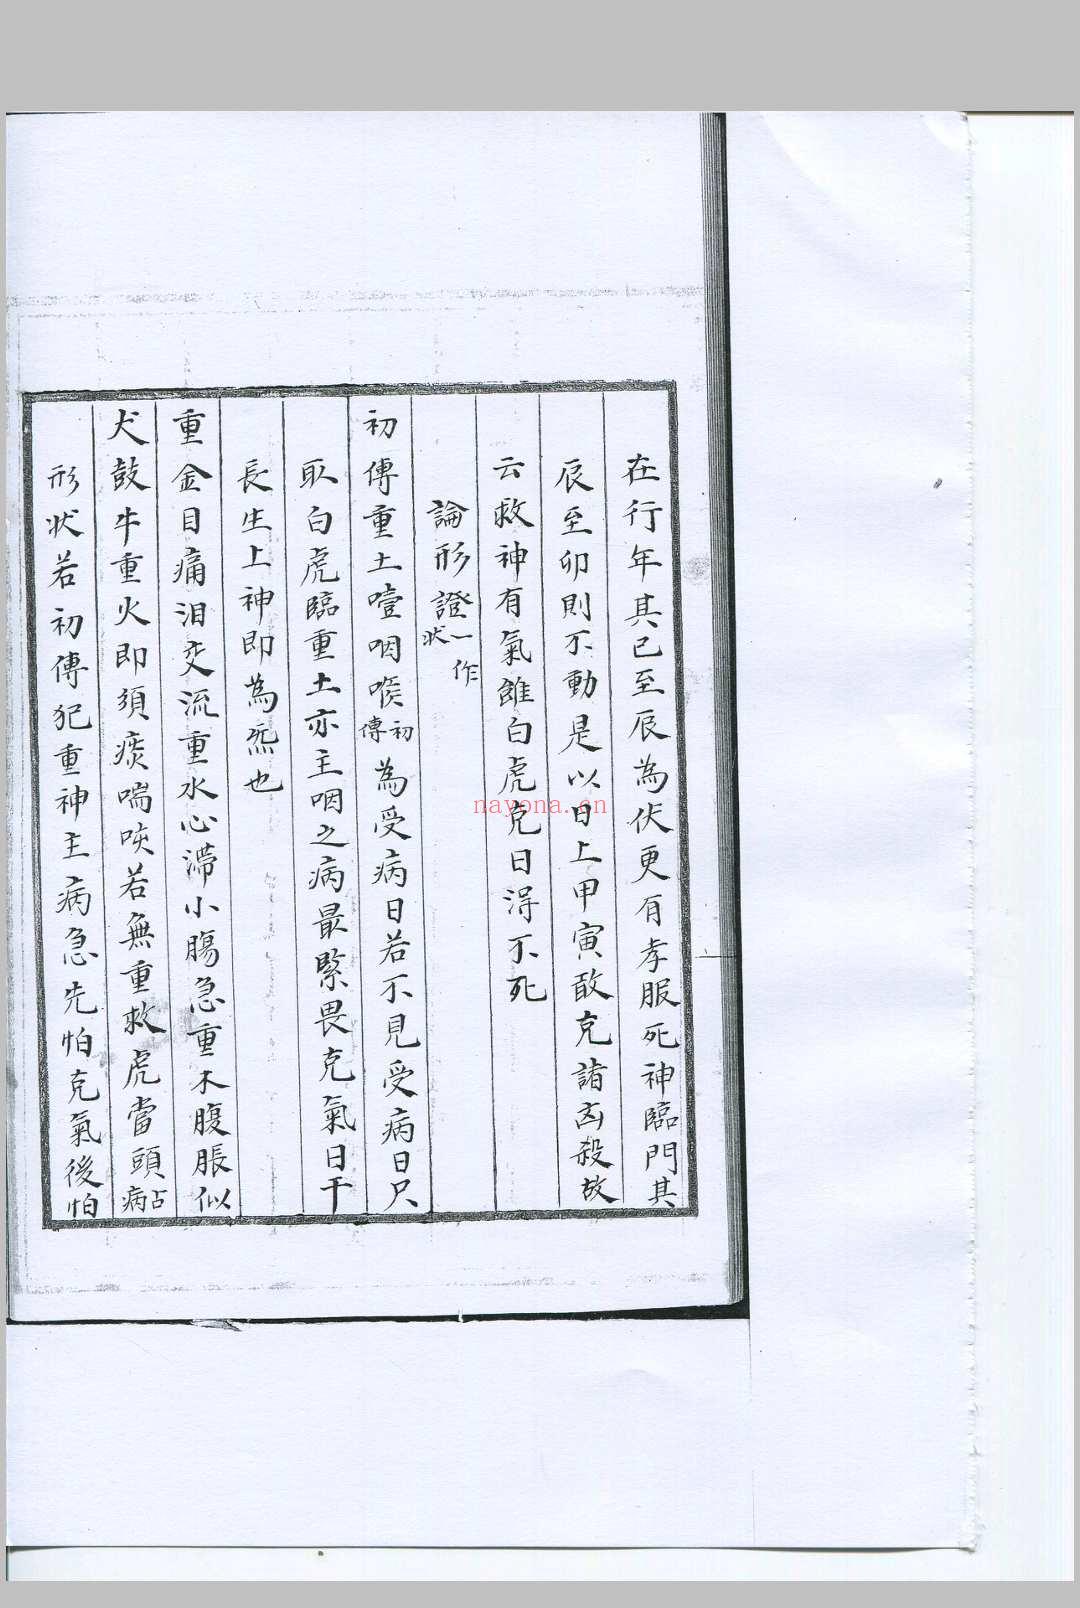 在行年其已至辰為伏更有孝服死神臨門其
辰至卯則不動是以日上甲寅敢克諸凶殺故
云救神有氣雖白虎克日得不死
論形證一作状
初傳重土噎咽喉初傳為受病日若不見受病日只
取白虎臨重土亦主咽之病最緊畏克氣日干
長生上神即為炁也
重金目痛泪交流重水心滯小腸急重木腹脹似
犬鼓牛重火即須痰喘咳若無重救虎當頭占病
形状若初傳犯重神主病急先怕克氣後怕
nayona.cn